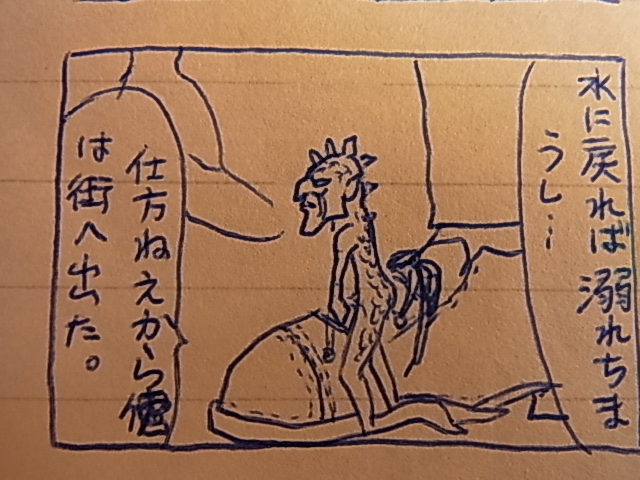 水に戻れば溺れちま
うし…
仕方ねえから俺
は街へ出た。